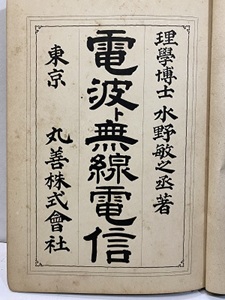 理學博士 水野敏之丞著
電波ト無線電信
東京 丸善株式會社